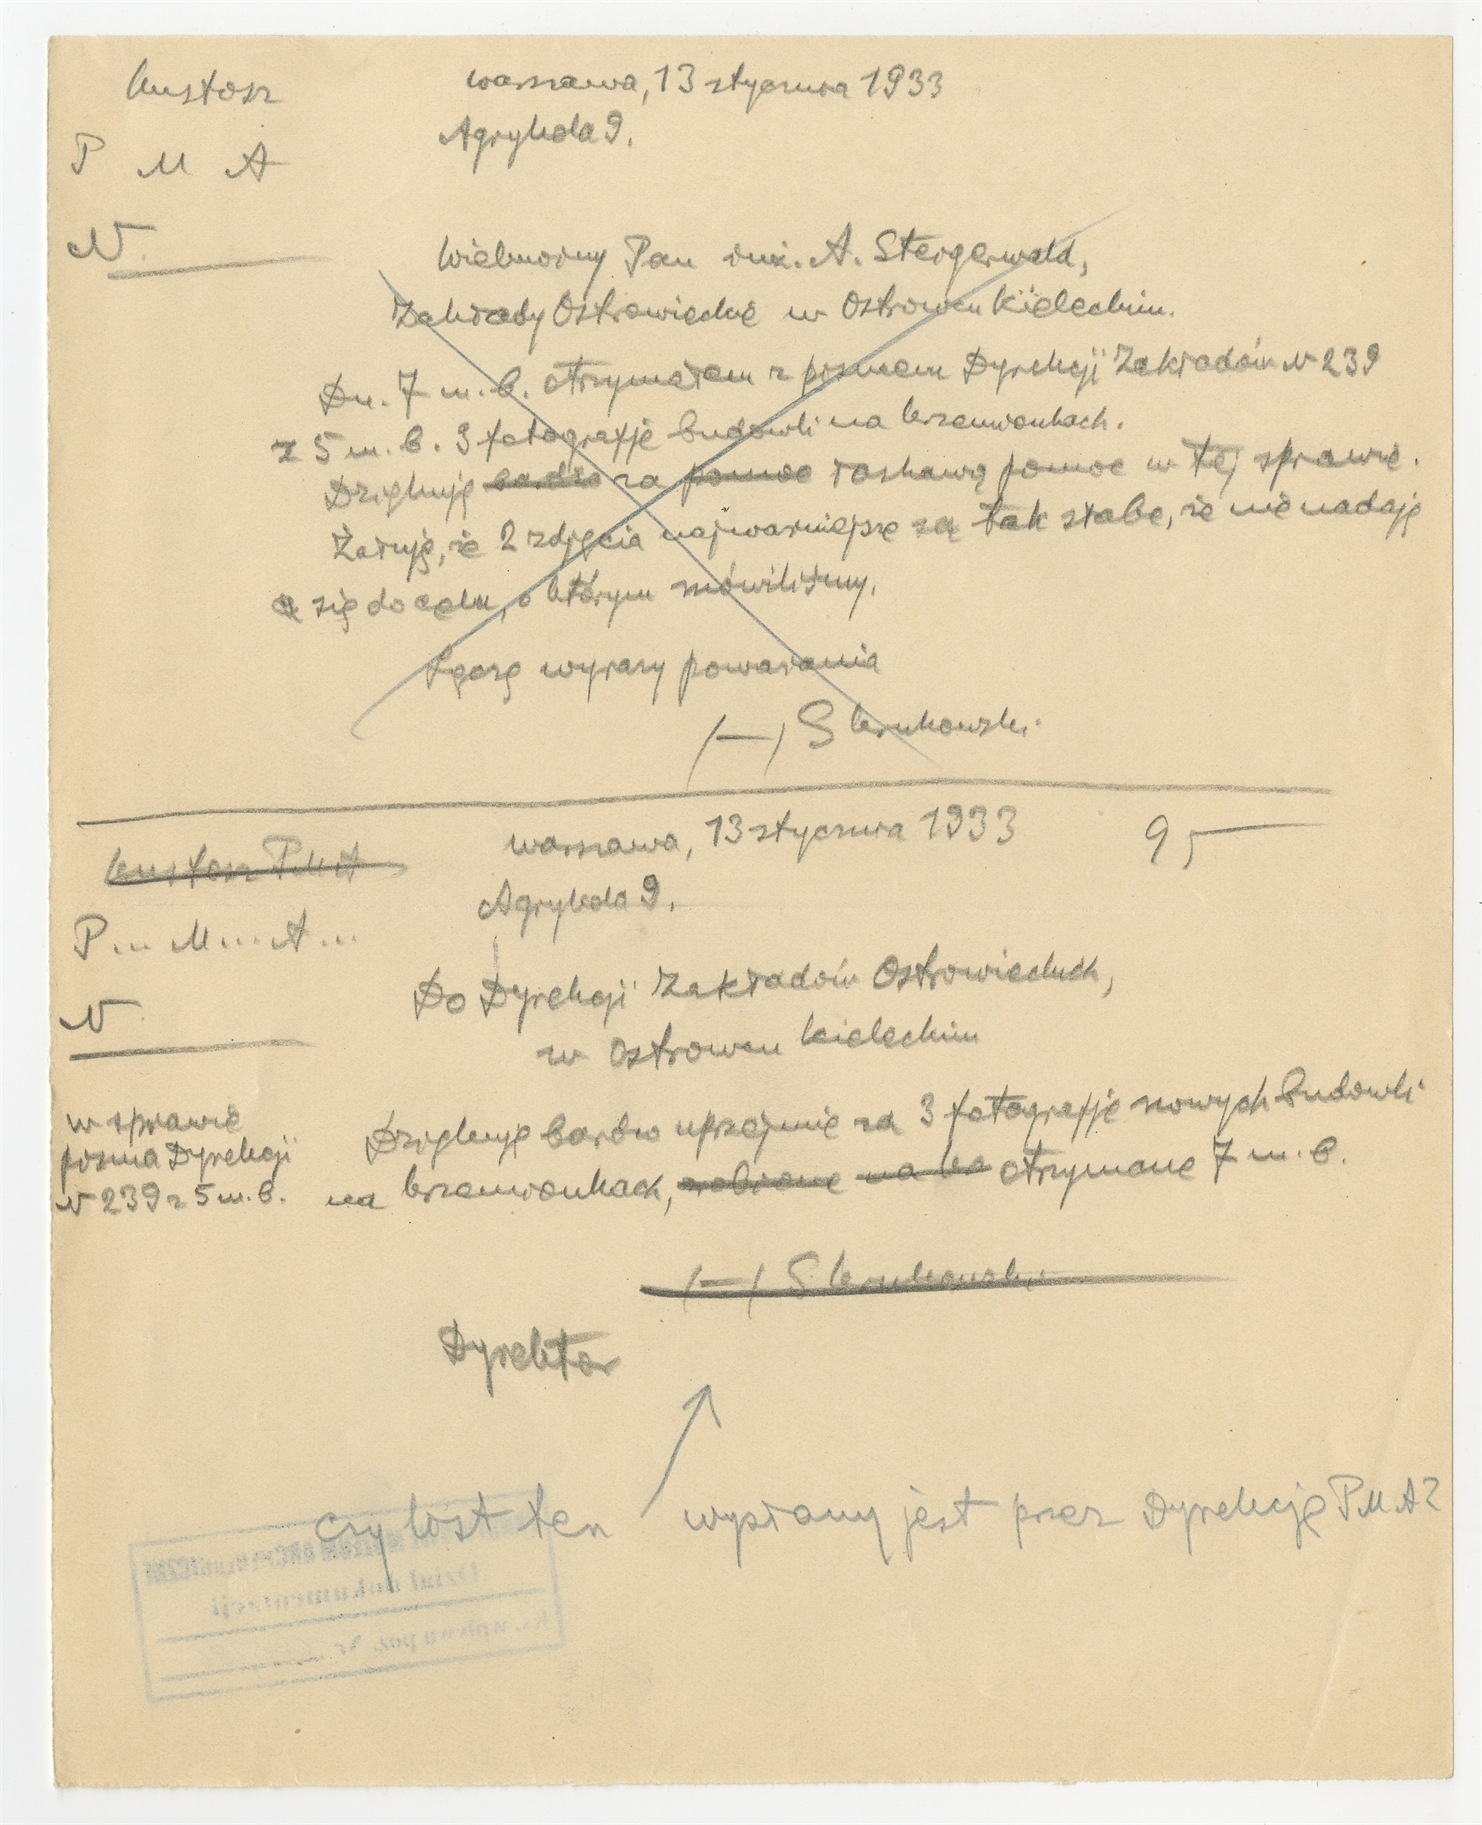 Kustosz
P M A
N.
Warszawa, 13 stycznia 1933
Agrykola 9.
Wielmożny Pan inż. A. Steigerwald,
Zakłady Ostrowieckie w Ostrowcu Kieleckim.
Dn. 7 m. b. otrzymałem z pismem Dyrekcji Zakładów N 239
z 5 m. b. 3 fotografje budowli na krzemionkach.
Dziękuję bardzo za pomoc łaskawą pomoc w tej sprawie.
Żałuję, że 2 zdjęcia najważniejsze są tak słabe, że nie nadają
się do celu, o którym mówiliśmy.
Łączę wyrazy poważania
/—/ S Krukowski.
Kustosz PMA
P... M... A...
N
Warszawa, 13 stycznia 1933
95
Agrykola 9.
Do Dyrekcji Zakładów Ostrowieckich,
w Ostrowcu kieleckim
w sprawie
pisma Dyrekcji
N 239 z 5 m. b.
Dziękuję bardzo uprzejmie za 3 fotografje nowych budowli
na krzemionkach, zrobione na otrzymane 7 m. b.
/—/ S Krukowski.
Dyrektor
czy list ten wysłany jest przez Dyrekcję PMA?